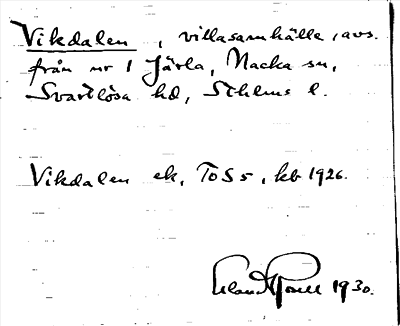 Vikdalen, villasamhälle, avs.
från nr 1 Järla, Nacka sn,
Svartlösa hd, Sthlms l.
Vikdalen ek, To S 5, kb 1926.
1930.